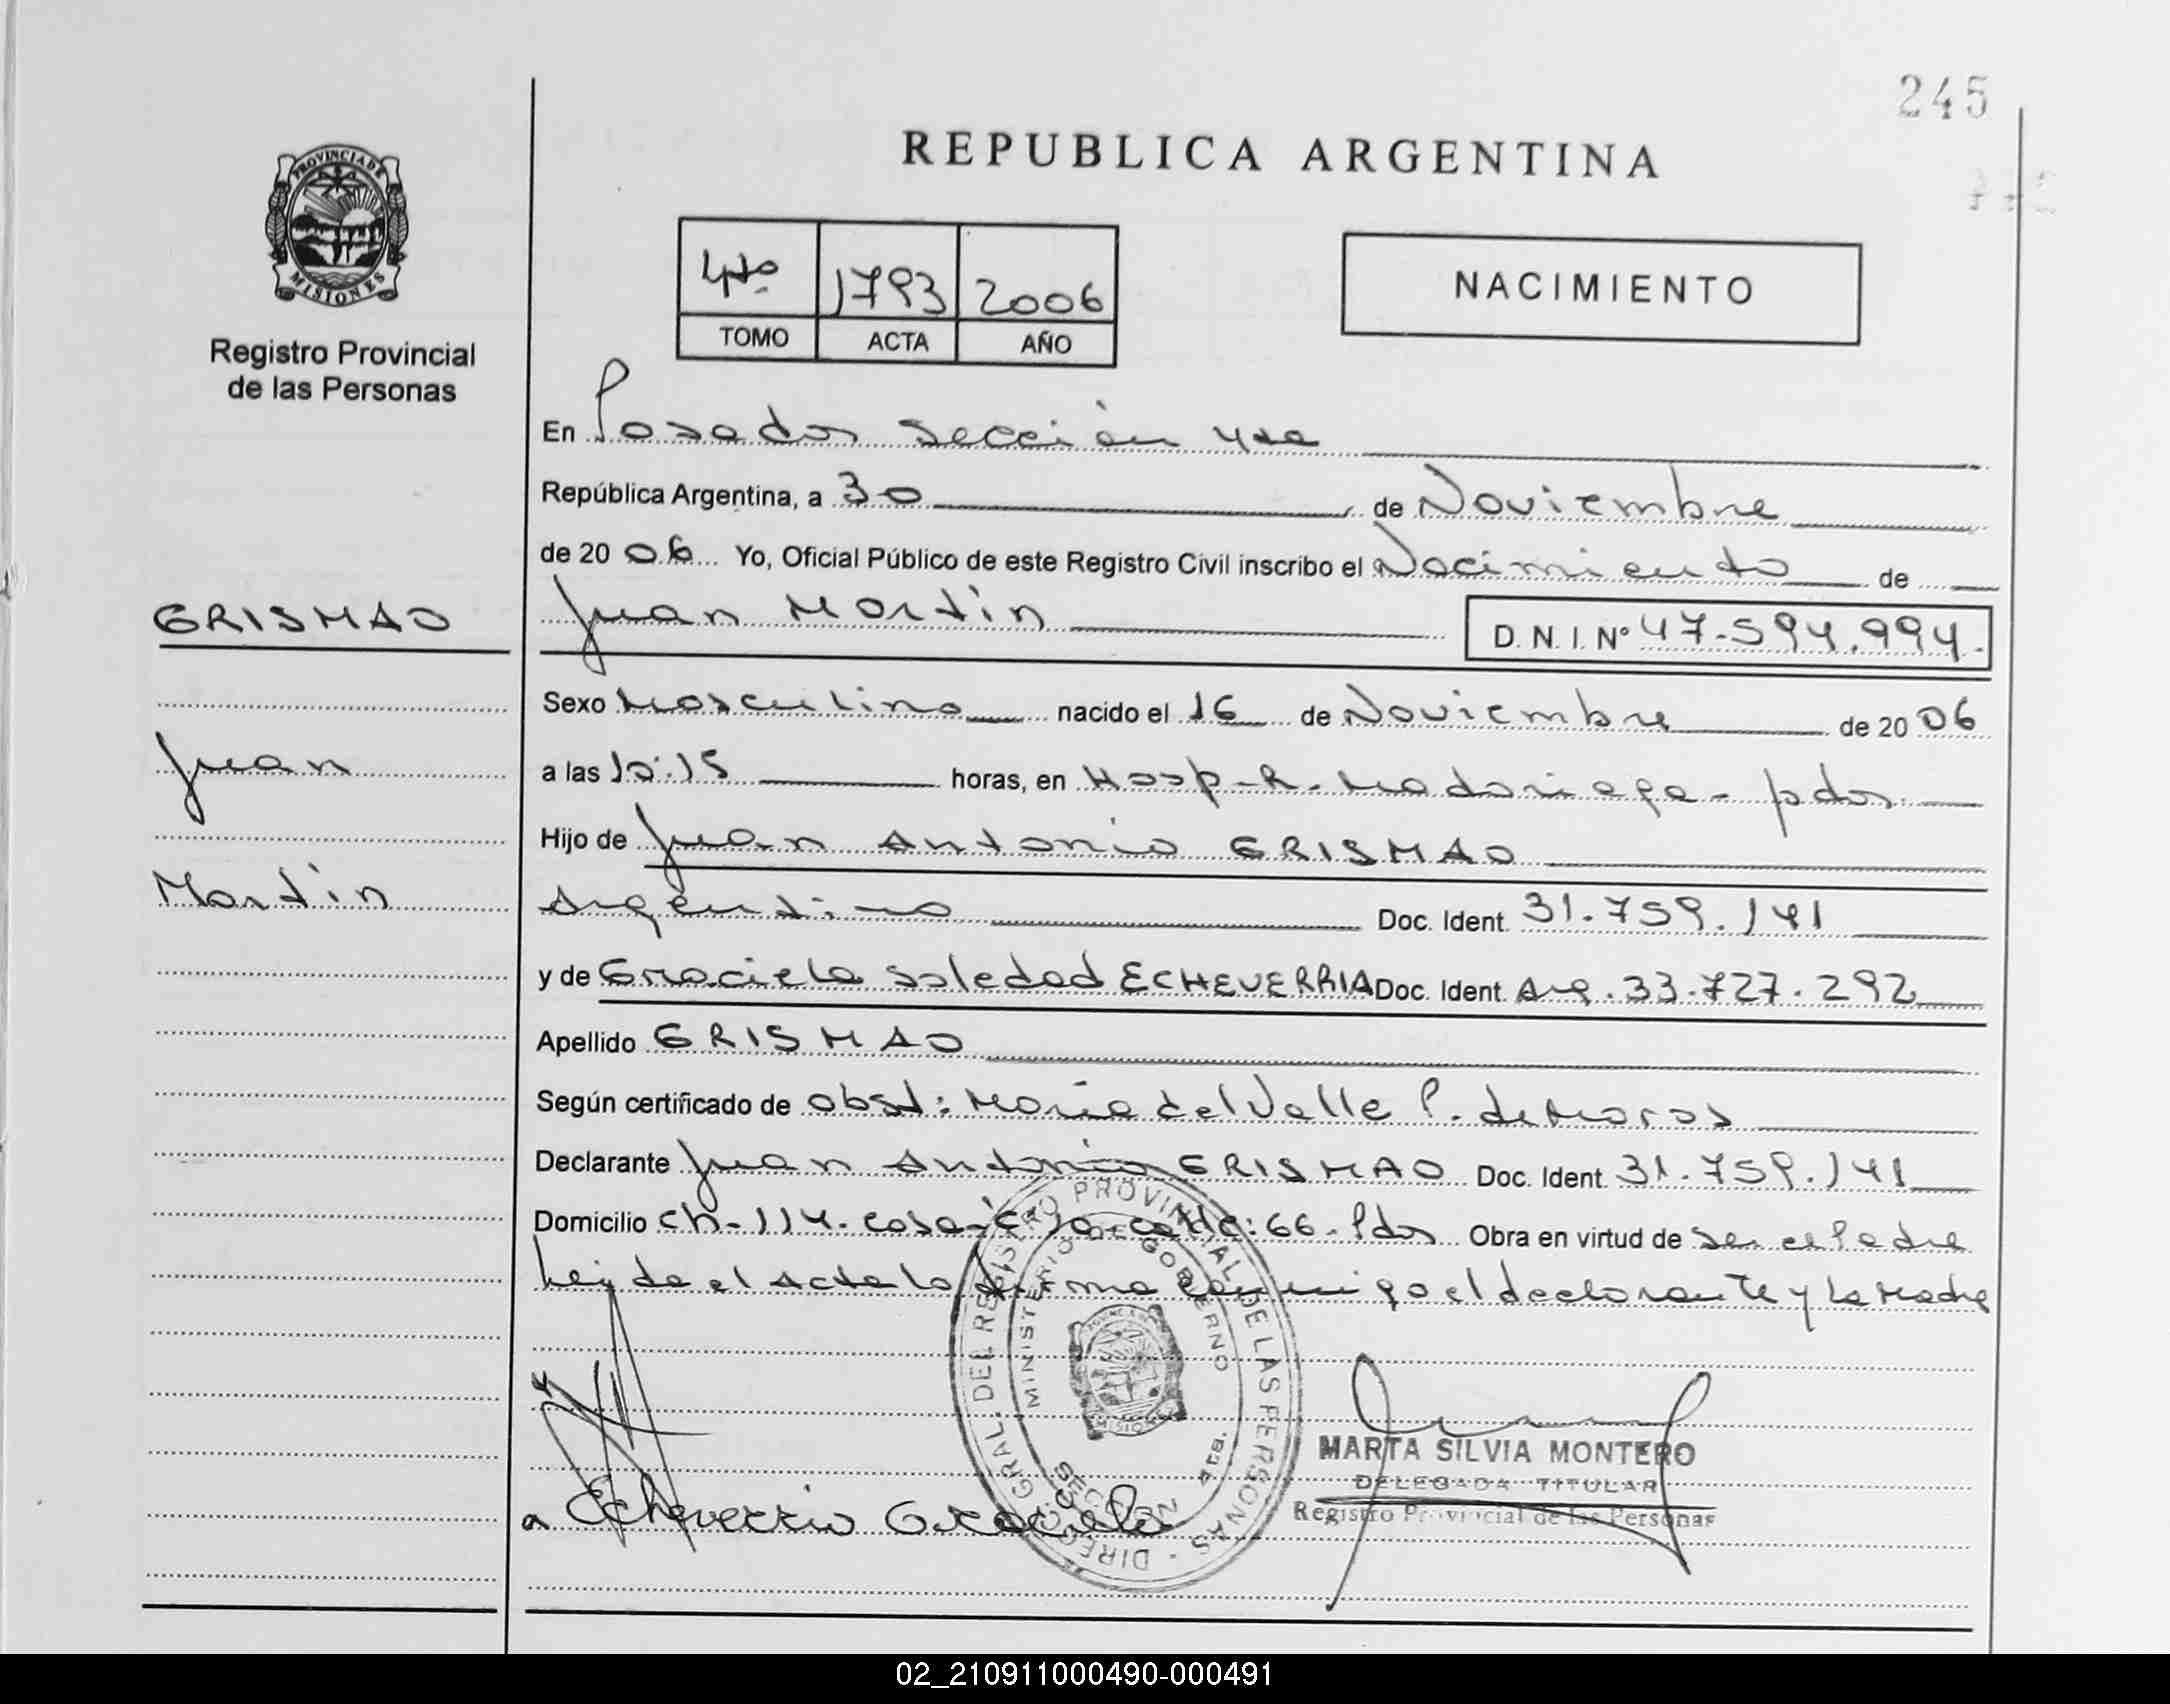 245
REPUBLICA ARGENTINA
PROVINCIA DE
MISIONES
Registro Provincial
de las Personas
4to 1793 2006
TOMO ACTA AÑO
NACIMIENTO
En Posadas sección 4ta
República Argentina, a 30 de Noviembre
de 20 06 Yo, Oficial Público de este Registro Civil inscribo el Nacimiento de
GRISMAO
Juan Martín
D. N. I. Nº 47.594.994.
Sexo Masculino nacido el 16 de Noviembre de 20 06
Juan
a las horas, en Hosp-R. Madariaga - pdas
Hijo de Juan Antonio GRISMAO
Martín
Argentino Doc. Ident. 31.759.141
y de Graciela Soledad ECHEVERRIA Doc. Ident. Arg. 33.727.292
Apellido GRISMAO
Según certificado de obst: María del Valle P. de Moras
Declarante Juan Antonio GRISMAO Doc. Ident. 31.759.141
Domicilio ch-114-casa calle: 66-Pdas Obra en virtud de ser el Padre
Leida el Acta la firma conmigo el declarante y la Madre
DIREC GRAL. DEL REGISTRO PROVINCIAL DE LAS PERSONAS
MINISTERIO DE GOBIERNO
SECCION 4TA.
MISIONES
MARTA SILVIA MONTERO
DELEGADA TITULAR
Registro Provincial de las Personas
Echeverria Graciela
02_210911000490-000491